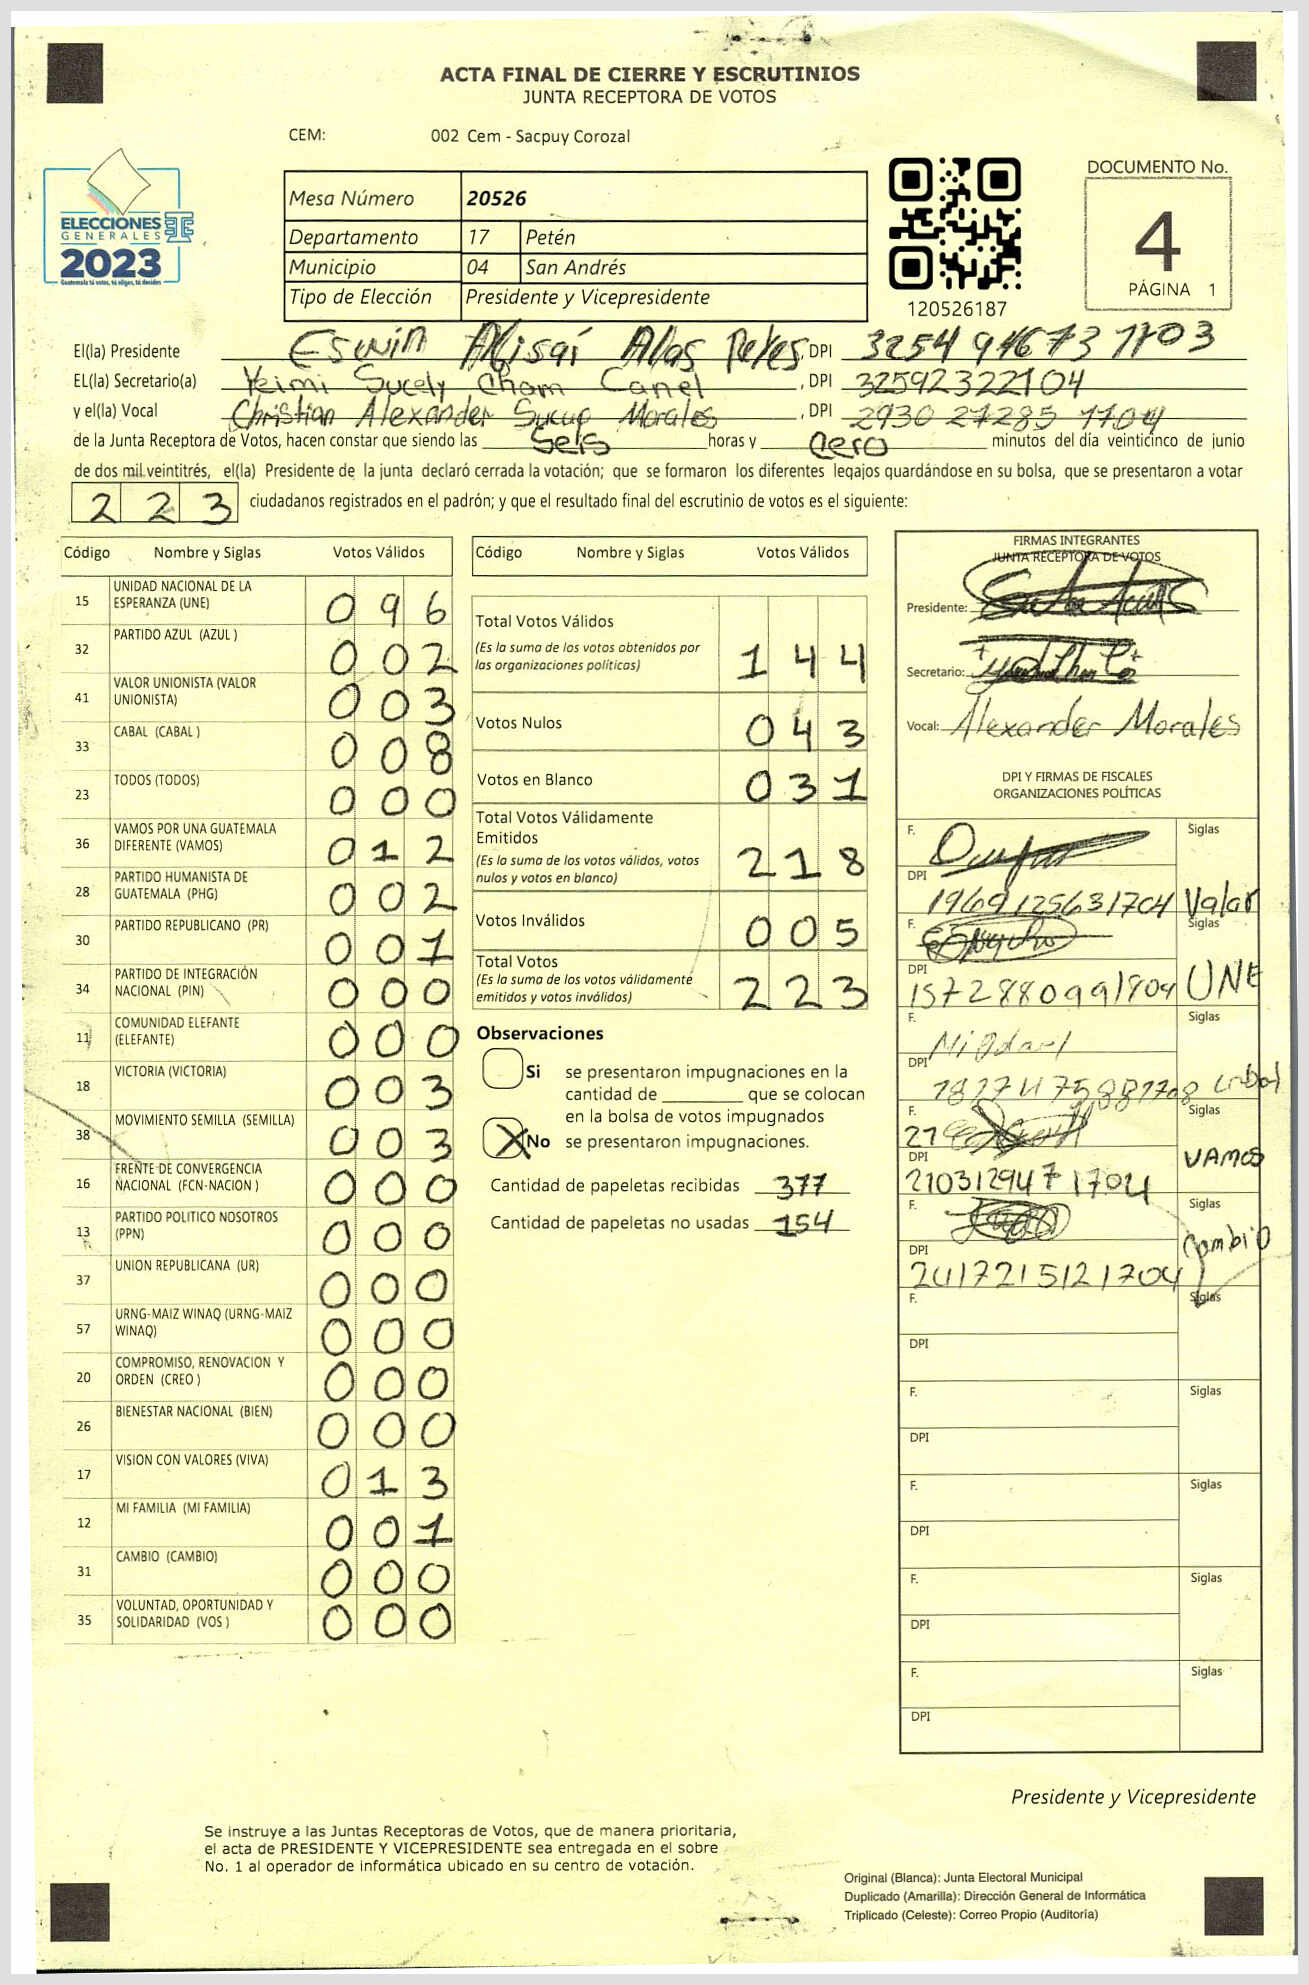 ACTA FINAL DE CIERRE Y ESCRUTINIOS
JUNTA RECEPTORA DE VOTOS
CEM: 002 Cem - Sacpuy Corozal
DOCUMENTO No.
4
PÁGINA 1
ELECCIONES
GENERALES
2023
Guatemala tú votas, tú eliges, tú decides
Mesa Número 20526
Departamento 17 Petén
Municipio 04 San Andrés
Tipo de Elección Presidente y Vicepresidente
120526187
El(la) Presidente Eswin Abisaí Alas Reyes, DPI
EL(la) Secretario(a) Yeimi Sucely Cham Canel, DPI 32592322104
y el(la) Vocal Christian Alexander Sucup Morales, DPI 2930 27285 1704
de la Junta Receptora de Votos, hacen constar que siendo las Seis horas y cero minutos del día veinticinco de junio
de dos mil veintitrés, el(la) Presidente de la junta declaró cerrada la votación; que se formaron los diferentes legajos quardándose en su bolsa, que se presentaron a votar
223 ciudadanos registrados en el padrón; y que el resultado final del escrutinio de votos es el siguiente:
Código Nombre y Siglas Votos Válidos
15 UNIDAD NACIONAL DE LA ESPERANZA (UNE) 096
32 PARTIDO AZUL (AZUL ) 002
41 VALOR UNIONISTA (VALOR UNIONISTA) 003
33 CABAL (CABAL ) 008
23 TODOS (TODOS) 000
36 VAMOS POR UNA GUATEMALA DIFERENTE (VAMOS) 012
28 PARTIDO HUMANISTA DE GUATEMALA (PHG) 002
30 PARTIDO REPUBLICANO (PR) 001
34 PARTIDO DE INTEGRACIÓN NACIONAL (PIN) 000
11 COMUNIDAD ELEFANTE (ELEFANTE) 000
18 VICTORIA (VICTORIA) 003
38 MOVIMIENTO SEMILLA (SEMILLA) 003
16 FRENTE DE CONVERGENCIA NACIONAL (FCN-NACION ) 000
13 PARTIDO POLITICO NOSOTROS (PPN) 000
37 UNION REPUBLICANA (UR) 000
57 URNG-MAIZ WINAQ (URNG-MAIZ WINAQ) 000
20 COMPROMISO, RENOVACION Y ORDEN (CREO ) 000
26 BIENESTAR NACIONAL (BIEN) 000
17 VISION CON VALORES (VIVA) 013
12 MI FAMILIA (MI FAMILIA) 001
31 CAMBIO (CAMBIO) 000
35 VOLUNTAD, OPORTUNIDAD Y SOLIDARIDAD (VOS ) 000
Código Nombre y Siglas Votos Válidos
Total Votos Válidos
(Es la suma de los votos obtenidos por las organizaciones políticas) 144
Votos Nulos 043
Votos en Blanco 031
Total Votos Válidamente Emitidos
(Es la suma de los votos válidos, votos nulos y votos en blanco) 218
Votos Inválidos 005
Total Votos
(Es la suma de los votos válidamente emitidos y votos inválidos) 223
Observaciones
Si se presentaron impugnaciones en la
cantidad de ________ que se colocan
en la bolsa de votos impugnados
X No se presentaron impugnaciones.
Cantidad de papeletas recibidas 377
Cantidad de papeletas no usadas 154
FIRMAS INTEGRANTES
JUNTA RECEPTORA DE VOTOS
Presidente:
Secretario:
Vocal: Alexander Morales
DPI Y FIRMAS DE FISCALES
ORGANIZACIONES POLÍTICAS
F. Siglas
DPI 1969125631704 Valor
F. Siglas
DPI 1572880991804 UNE
F. Siglas
DPI
F. 27 Siglas
DPI 2103129471704 VAMOS
F. Siglas
DPI 2417215121704 Cambio
F. Siglas
DPI
F. Siglas
DPI
F. Siglas
DPI
F. Siglas
DPI
F. Siglas
DPI
Presidente y Vicepresidente
Se instruye a las Juntas Receptoras de Votos, que de manera prioritaria,
el acta de PRESIDENTE Y VICEPRESIDENTE sea entregada en el sobre
No. 1 al operador de informática ubicado en su centro de votación.
Original (Blanca): Junta Electoral Municipal
Duplicado (Amarilla): Dirección General de Informática
Triplicado (Celeste): Correo Propio (Auditoría)